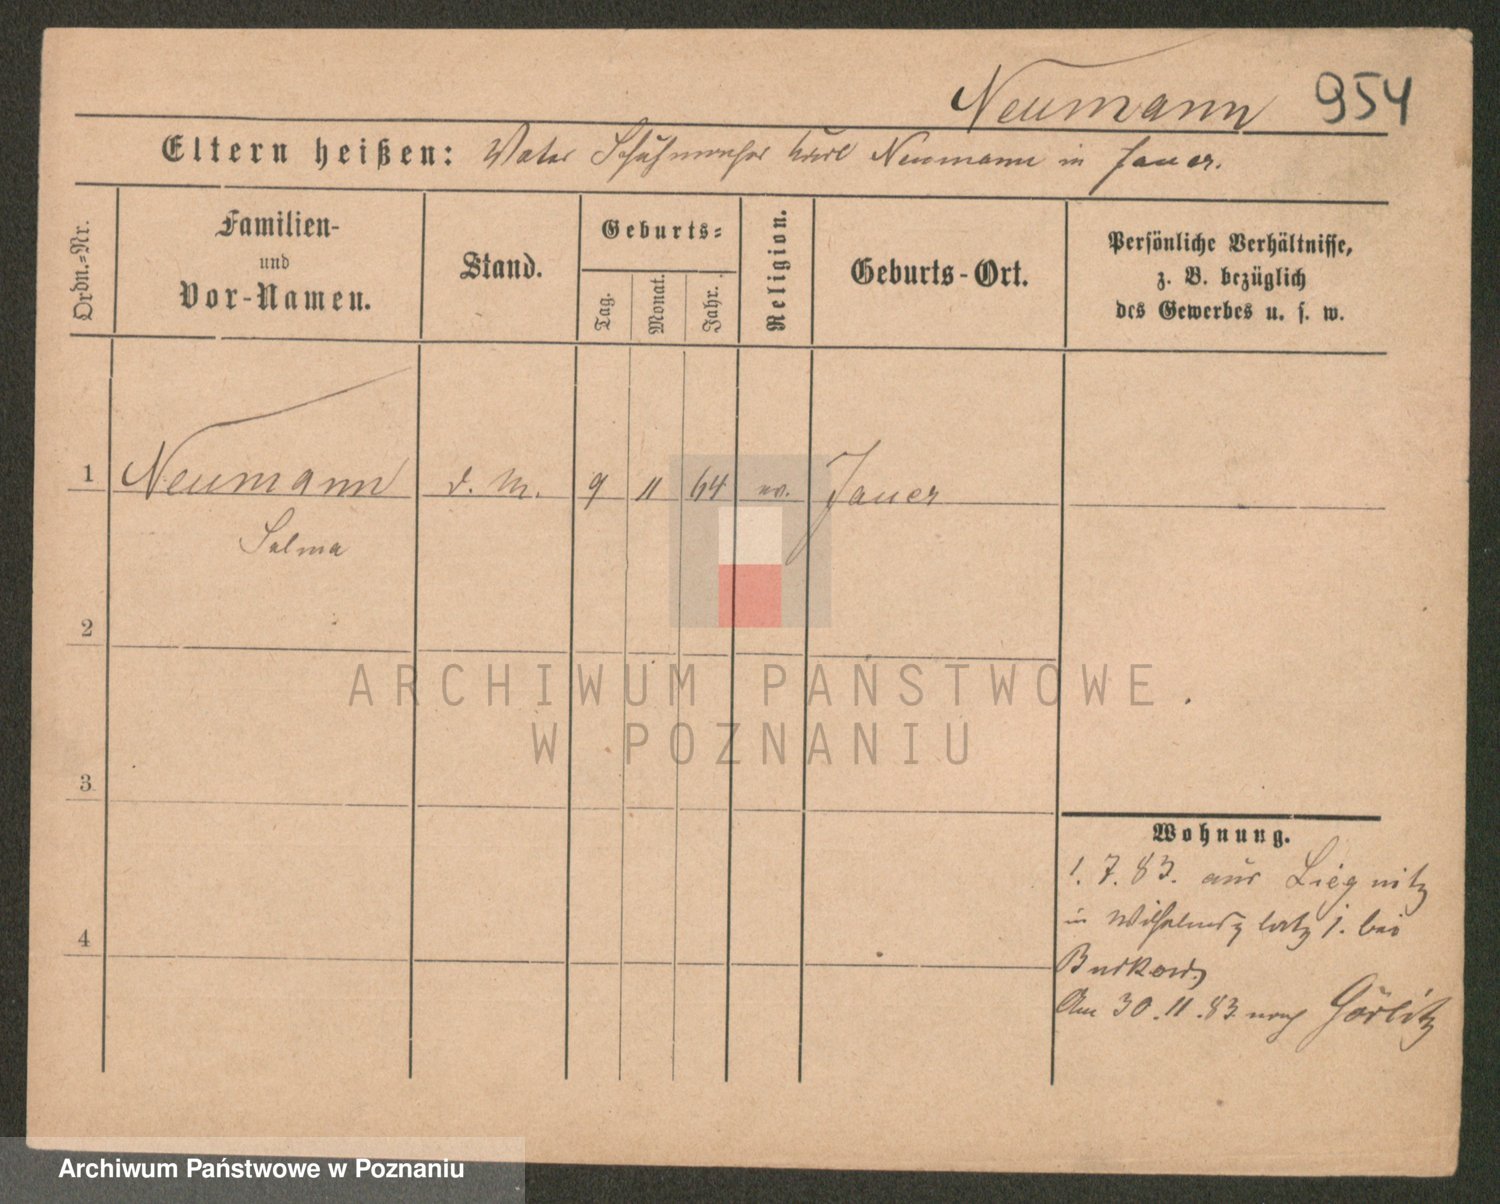 Neumann 954
Eltern heißen: Vater Schuhmacher Karl Neumann in Jauer.
Ordn.-Nr.
Familien-
und
Vor-Namen.
Stand.
Geburts-
Tag.
Monat.
Jahr.
Religion.
Geburts-Ort.
Persönliche Verhältnisse,
z. B. bezüglich
des Gewerbes u. s. w.
1 Neumann d. M. 9 11 64 ev. Jauer
Selma
2
3
4
Wohnung.
1. 7. 83. aus Liegnitz
in Wilhelmsplatz 1. bei
Am 30. 11. 83 nach Görlitz
ARCHIWUM PAŃSTWOWE
W POZNANIU
Archiwum Państwowe w Poznaniu